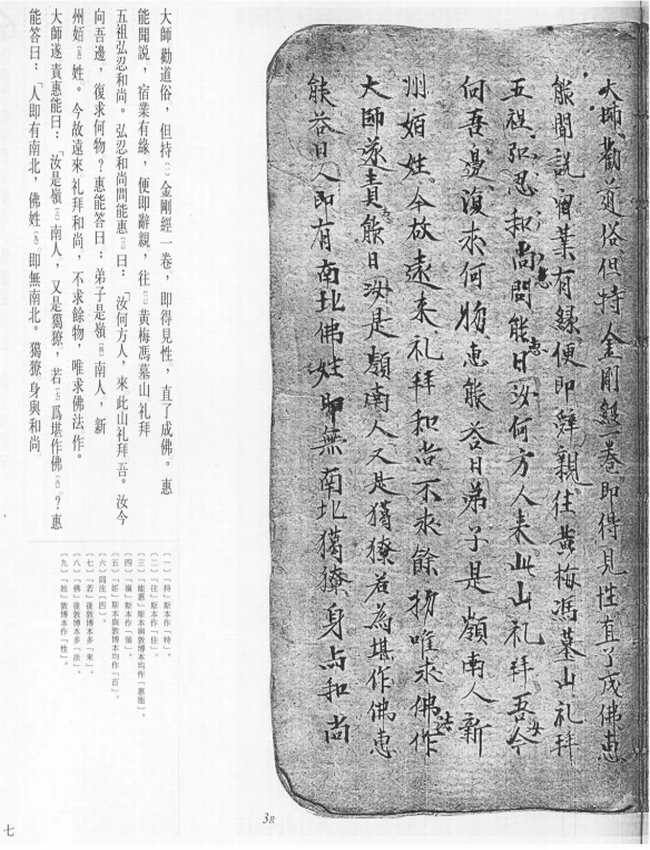 大師勸道俗但持金剛經一卷即得見性直了成佛惠
能聞說宿業有緣便即辭親往黃梅馮墓山礼拜
五祖弘忍和尚問能惠曰汝何方人来此山礼拜吾汝今
向吾邊復求何物惠能荅曰弟子是嶺南人新
州姓今故遠来礼拜和尚不求餘物唯求佛法作
大師遂責惠能曰汝是嶺南人又是獦獠若為堪作佛惠
能荅曰人即有南北佛姓即無南北獦獠身与和尚
3R
大師勸道俗，但持〔一〕金剛經一卷，即得見性，直了成佛。惠
能聞説，宿業有緣，便即辭親，往〔二〕黃梅馮墓山礼拜
五祖弘忍和尚。弘忍和尚問能惠〔三〕曰：「汝何方人，來此山礼拜吾。汝今
向吾邊，復求何物？惠能答曰：弟子是嶺〔四〕南人，新
州〔五〕姓。今故遠來礼拜和尚，不求餘物，唯求佛法作。
大師遂責惠能曰：「汝是嶺〔六〕南人，又是獦獠，若〔七〕爲堪作佛〔八〕？惠
能答曰：「人即有南北，佛姓〔九〕即無南北。獦獠身與和尚
〔一〕「持」斯本作「特」。
〔二〕「往」斯本作「住」。
〔三〕「能惠」斯本與敦博本均作「惠能」。
〔四〕「嶺」斯本作「領」。
〔五〕「」斯本與敦博本均作「百」。
〔六〕同注〔四〕。
〔七〕「若」後敦博本多「來」。
〔八〕「佛」後敦博本多「法」。
〔九〕「姓」敦博本作「性」。
七